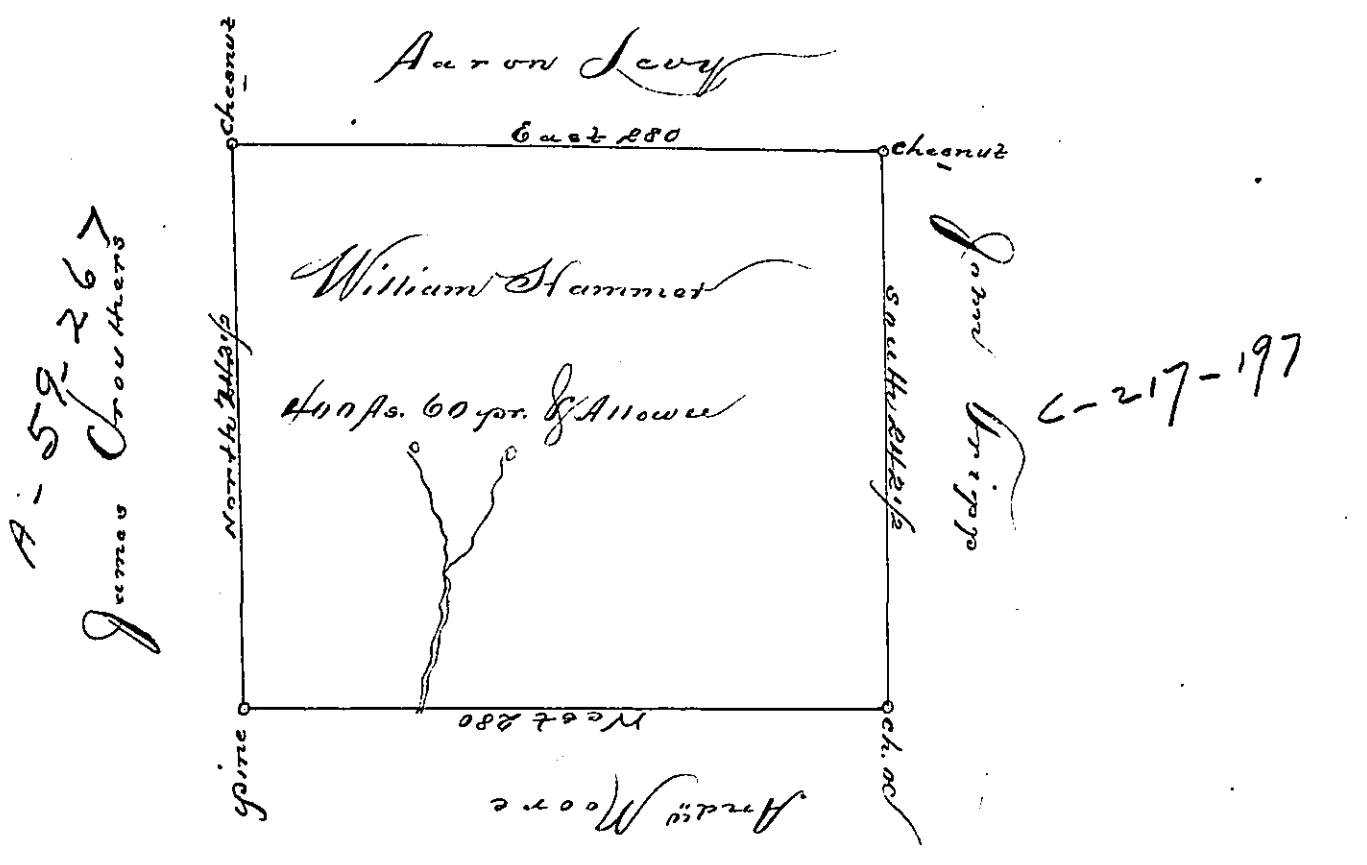 Aaron Levy
Chesnut
East 280
Chesnut
A-59-267
James Crouthers
North 242 1/2
William Hammer
400 As. 60 pr. & Allowce
South 242 1/2
John Tripp
C-217-197
Pine
West 280
Ch. O
Andw Moore